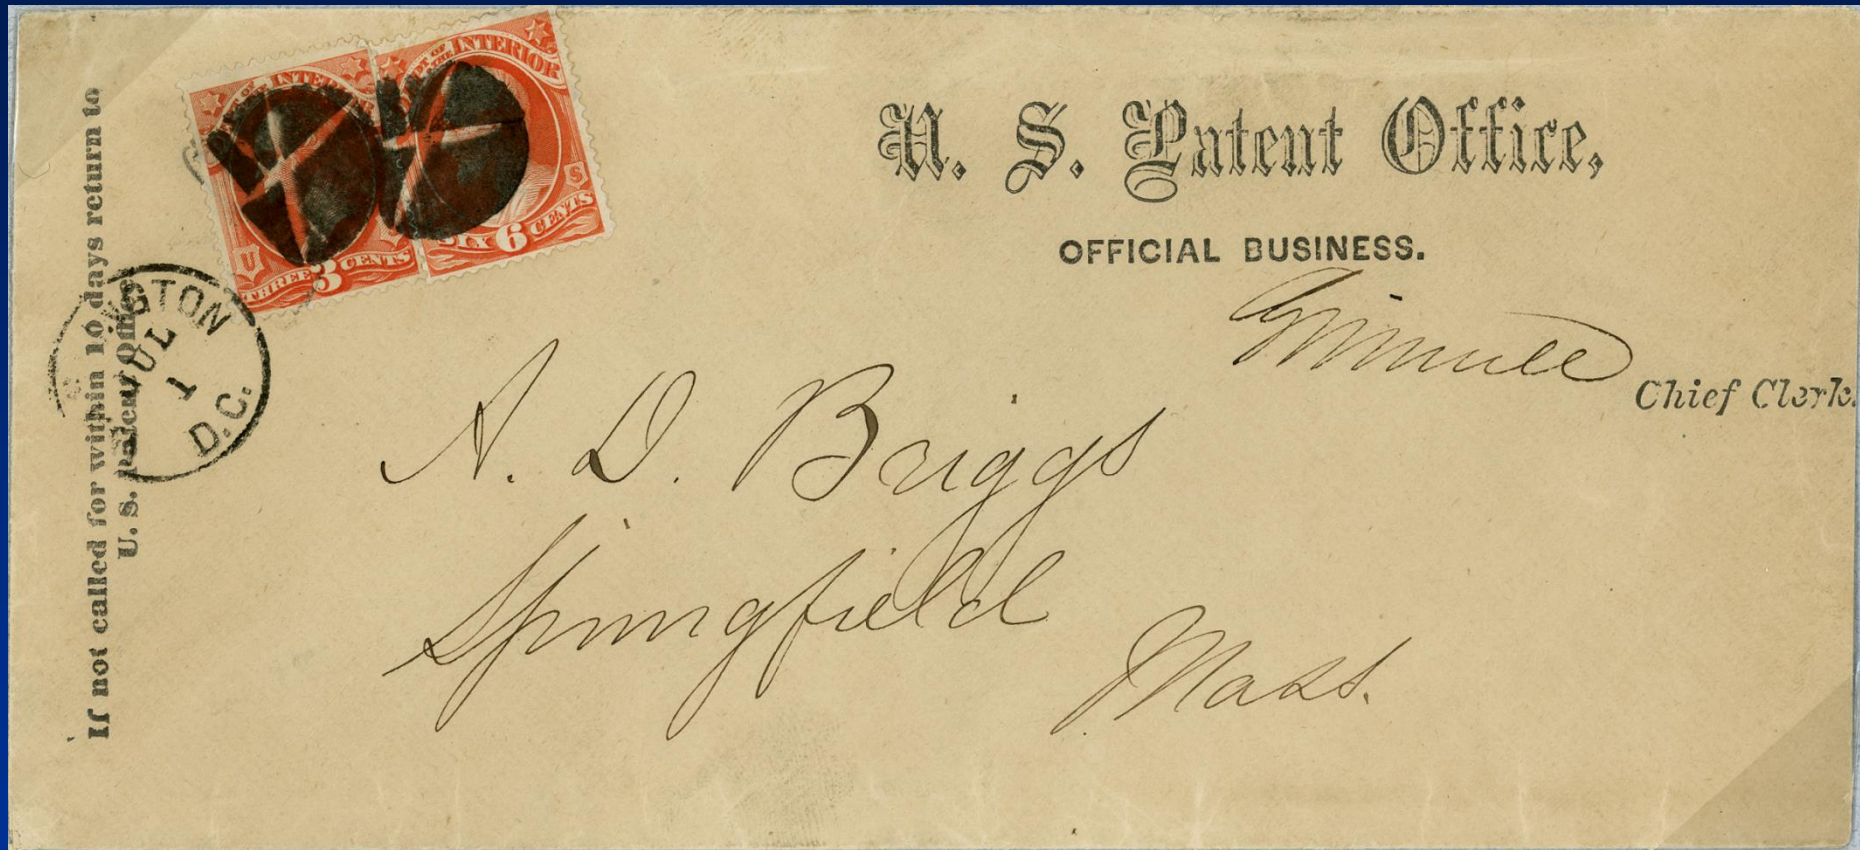 If not called for within 10 days return to
U. S. Patent Office
DEPT OF THE INTERIOR
U
THREE 3 CENTS
DEPT OF THE INTERIOR
S
SIX 6 CENTS
INGTON
JUL
1
D.C.
U. S. Patent Office,
OFFICIAL BUSINESS.
Chief Clerk.
A. D. Briggs
Springfield
Mass.